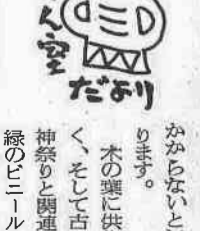 ん空
だより
かからないと
ります。
木の葉に供
く、そして古
神祭りと関連
緑のビニール